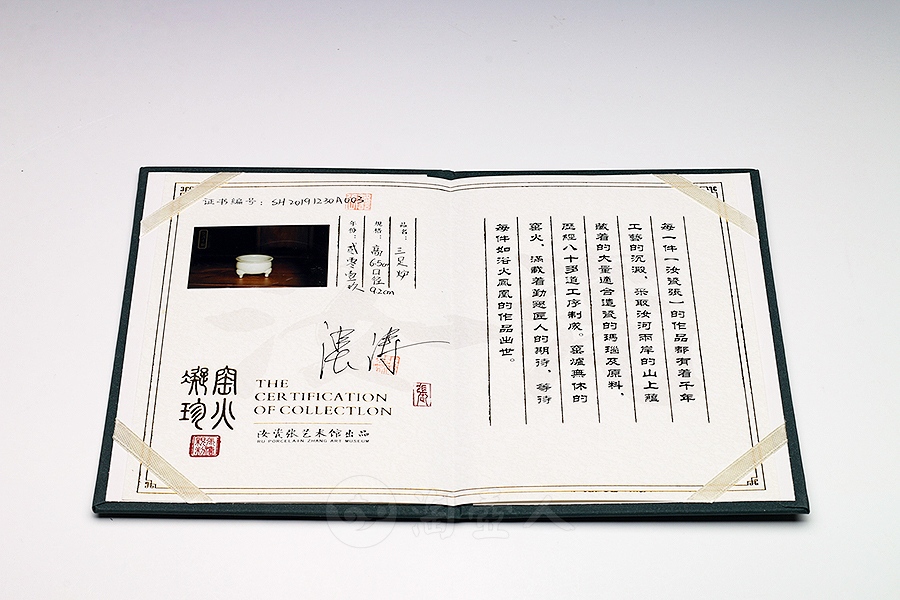 证书编号：SH20191230A003
品名：三足炉
规格：高6.5cm口径9.2cm
年份：贰零壹玖
窑火
凝珍
THE
CERTIFICATION
OF COLLECTLON
汝瓷张艺术馆出品
RU PORCELAIN ZHANG ART MUSEUM
張
每一件《汝瓷張》的作品都有着千年
工藝的沉澱，采取汝河兩岸的山上蘊
藏着的大量適合造瓷的瑪瑙及原料，
歷經八十多道工序制成。窑爐無休的
窑火，滿載着勤懇匠人的期待，等待
每件如浴火鳳凰的作品出世。
淘壶人